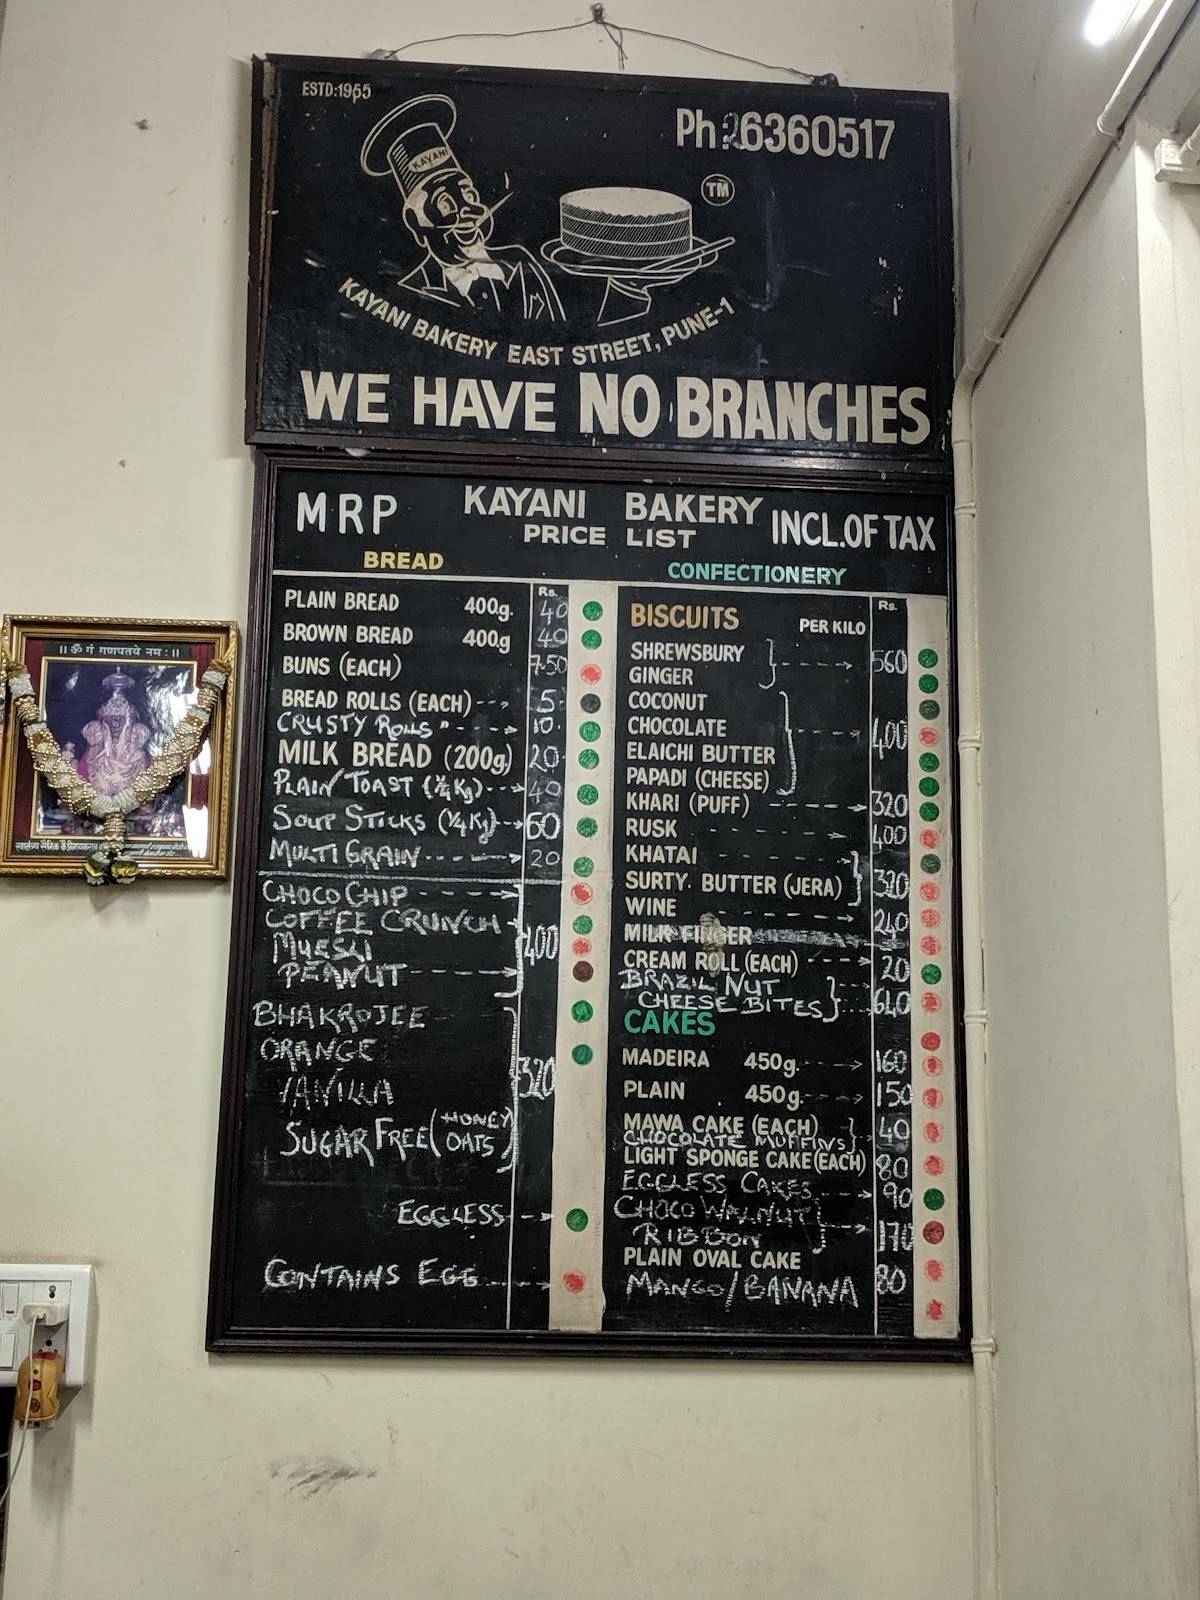 ESTD:1955
Ph:26360517
KAYANI
TM
KAYANI BAKERY EAST STREET, PUNE-1
WE HAVE NO BRANCHES
MRP KAYANI BAKERY INCL.OF TAX
PRICE LIST
BREAD
Rs.
PLAIN BREAD 400g. 40
BROWN BREAD 400g 40
BUNS (EACH) 7.50
BREAD ROLLS (EACH) 5
CRUSTY ROLLS " 10
MILK BREAD (200g) 20
PLAIN TOAST (¼ Kg) 40
SOUP STICKS (¼ Kg) 60
MULTI GRAIN 20
CHOCO CHIP
COFFEE CRUNCH
MUESLI 400
PEANUT
BHAKROJEE
ORANGE
VANILLA 320
SUGAR FREE (HONEY OATS)
EGGLESS
CONTAINS EGG
CONFECTIONERY
Rs.
BISCUITS PER KILO
SHREWSBURY
GINGER 560
COCONUT
CHOCOLATE 400
ELAICHI BUTTER
PAPADI (CHEESE)
KHARI (PUFF) 320
RUSK 400
KHATAI
SURTY. BUTTER (JERA) 320
WINE 240
MILK FINGER
CREAM ROLL (EACH) 20
BRAZIL NUT
CHEESE BITES 640
CAKES
MADEIRA 450g. 160
PLAIN 450g. 150
MAWA CAKE (EACH) 40
CHOCOLATE MUFFINS
LIGHT SPONGE CAKE (EACH) 80
EGGLESS CAKES 90
CHOCO WALNUT
RIBBON 170
PLAIN OVAL CAKE
MANGO/BANANA 80
॥ ॐ गं गणपतये नमः ॥